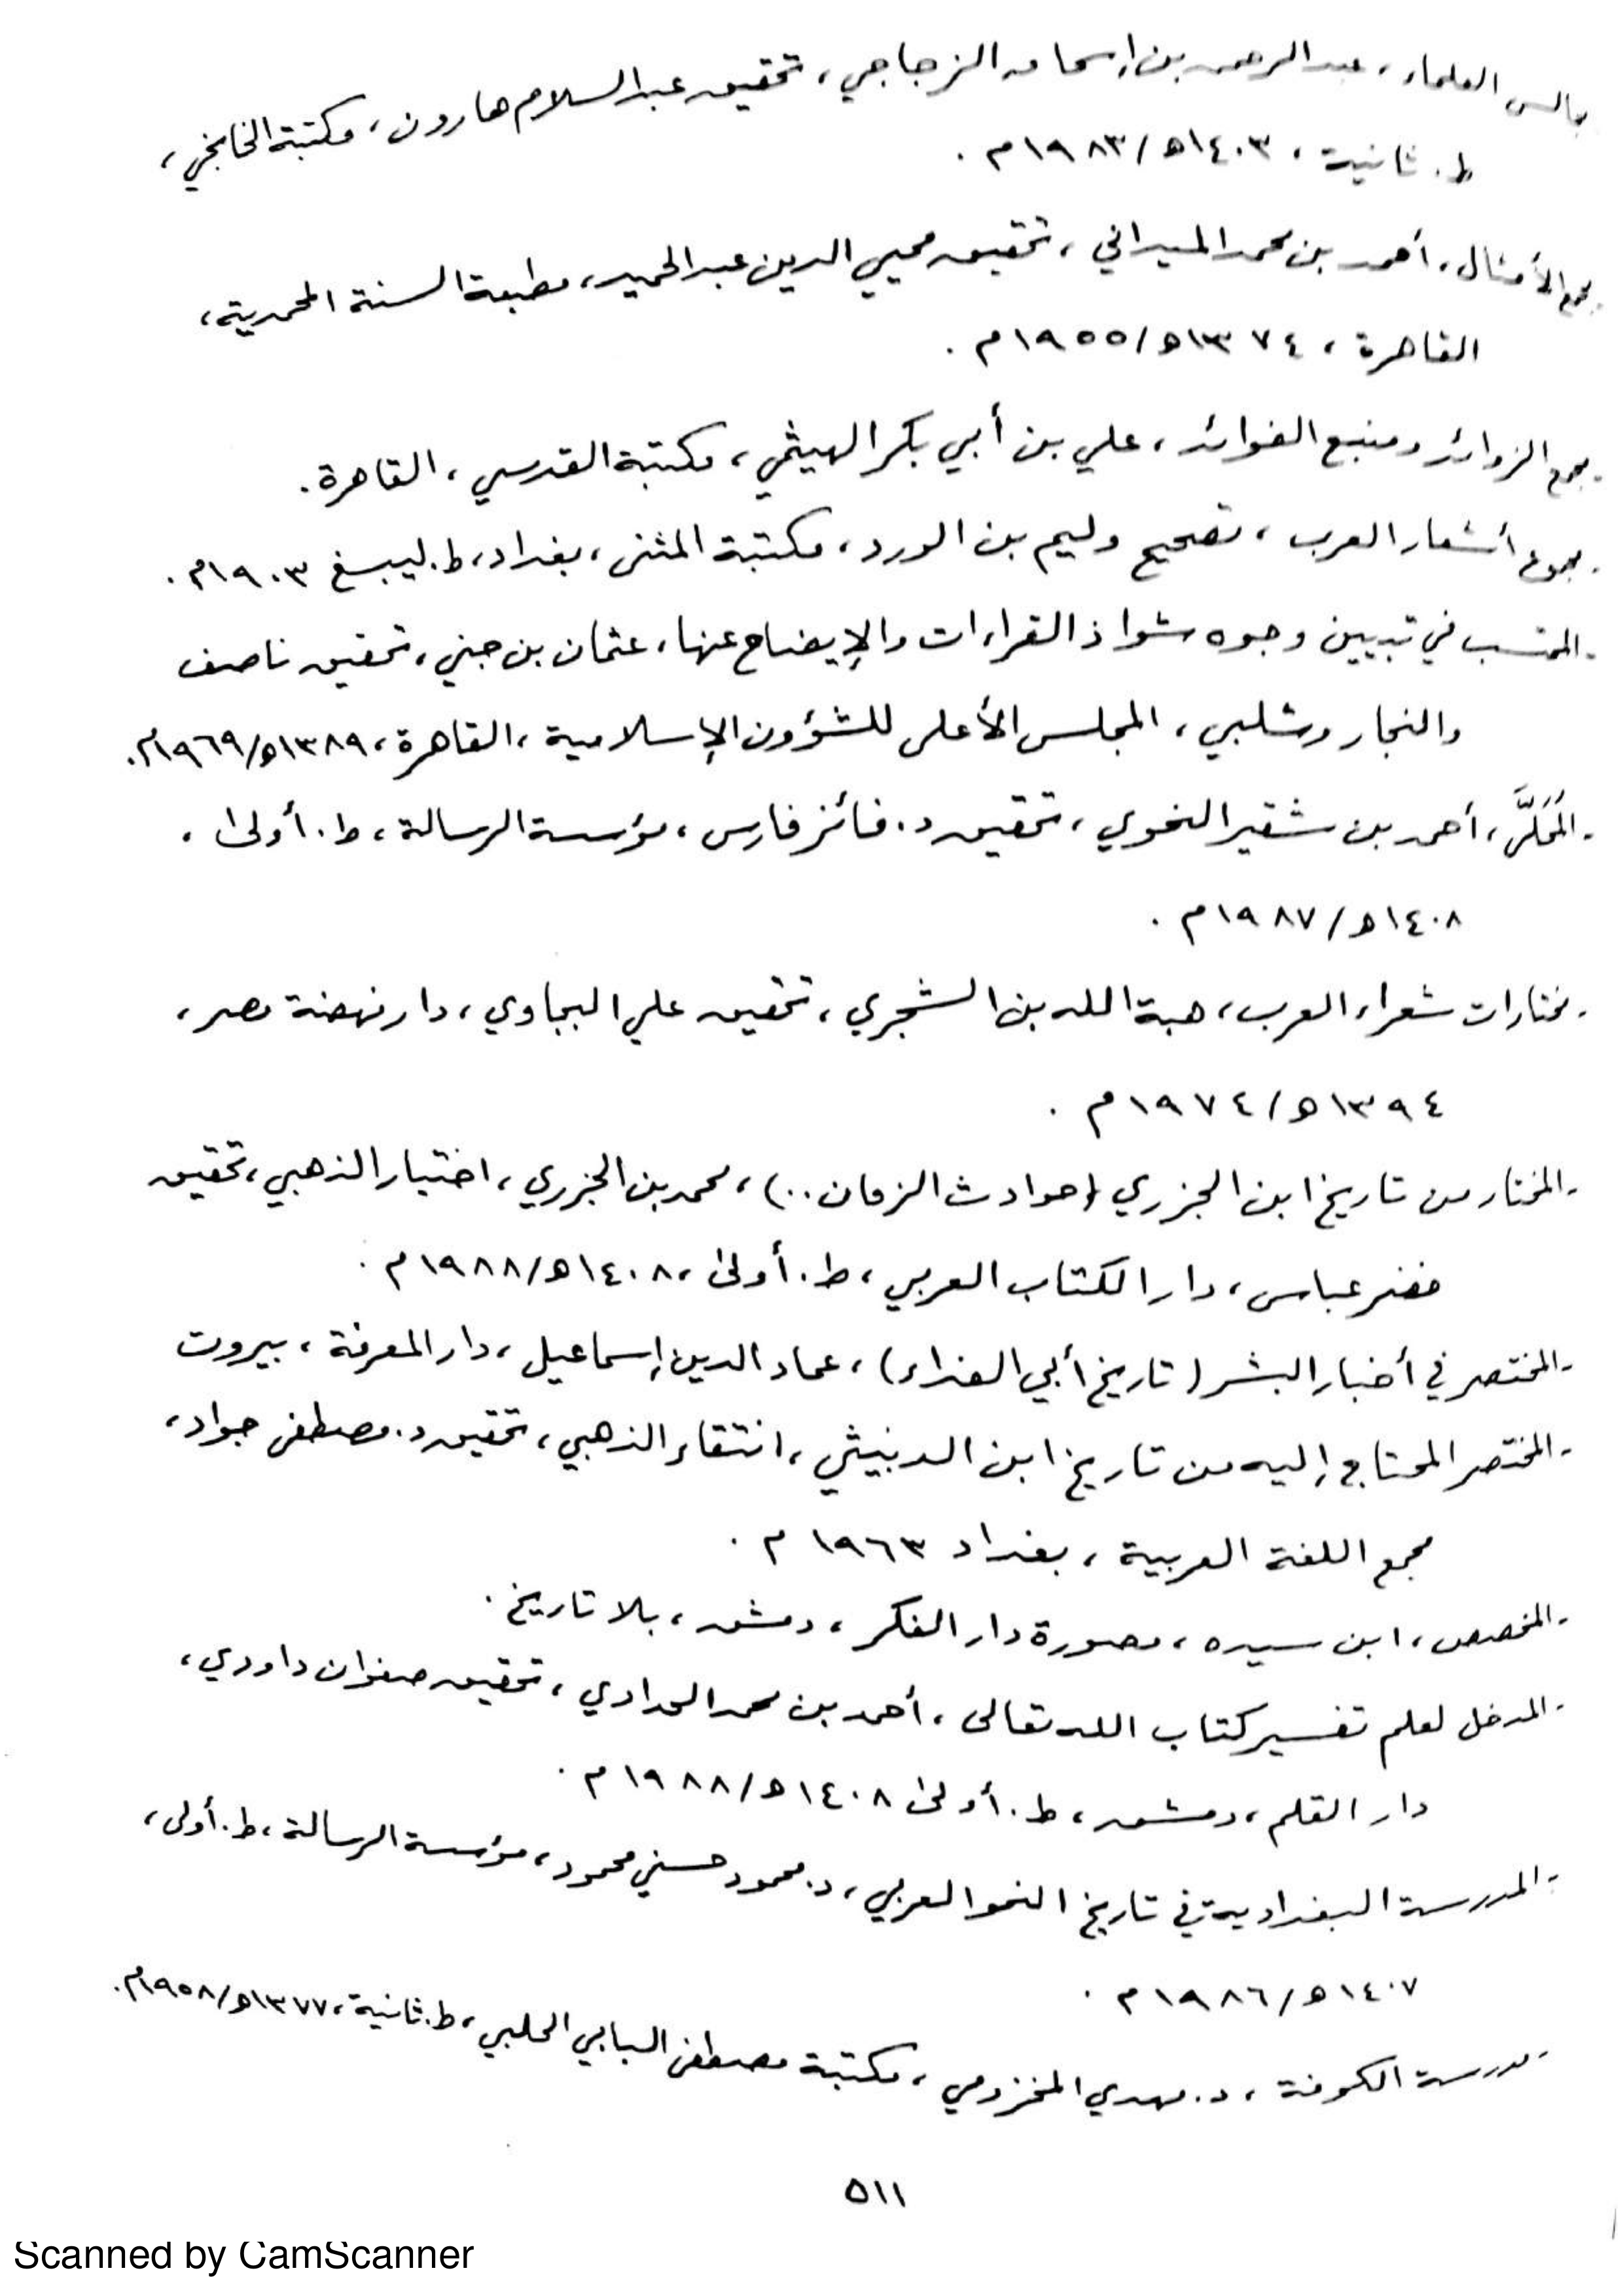 مجالس العلماء، عبد الرحمن بن إسحاق الزجاجي، تحقيق عبد السلام هارون، مكتبة الخانجي،
ط. ثانية، ١٤٠٣هـ/١٩٨٣م.
مجمع الأمثال، أحمد بن محمد الميداني، تحقيق محيي الدين عبد الحميد، مطبعة السنة المحمدية،
القاهرة، ١٣٧٤هـ/١٩٥٥م.
- مجمع الزوائد ومنبع الفوائد، علي بن أبي بكر الهيثمي، مكتبة القدسي، القاهرة.
- مجموع أشعار العرب، تصحيح وليم بن الورد، مكتبة المثنى، بغداد، ط. ليبسغ ١٩٠٣م.
- المحتسب في تبيين وجوه شواذ القراءات والإيضاح عنها، عثمان بن جني، تحقيق ناصف
والنجار وشلبي، المجلس الأعلى للشؤون الإسلامية، القاهرة، ١٣٨٩هـ/١٩٦٩م.
- المُحَلَّى، أحمد بن شقير النحوي، تحقيق د. فائز فارس، مؤسسة الرسالة، ط. أولى،
١٤٠٨هـ/١٩٨٧م.
- مختارات شعراء العرب، هبة الله بن الشجري، تحقيق علي البجاوي، دار نهضة مصر،
١٣٩٤هـ/١٩٧٤م.
- المختار من تاريخ ابن الجزري (حوادث الزمان..)، محمد بن الجزري، اختيار الذهبي، تحقيق
خضر عباس، دار الكتاب العربي، ط. أولى، ١٤٠٨هـ/١٩٨٨م.
- المختصر في أخبار البشر (تاريخ أبي الفداء)، عماد الدين إسماعيل، دار المعرفة، بيروت
- المختصر المحتاج إليه من تاريخ ابن الدبيثي، انتقاء الذهبي، تحقيق د. مصطفى جواد،
مجمع اللغة العربية، بغداد ١٩٦٣م.
- المخصص، ابن سيده، مصورة دار الفكر، دمشق، بلا تاريخ.
- المدخل لعلم تفسير كتاب الله تعالى، أحمد بن محمد الحدادي، تحقيق صفوان داودي،
دار القلم، دمشق، ط. أولى ١٤٠٨هـ/١٩٨٨م.
- المدرسة البغدادية في تاريخ النحو العربي، د. محمود حسني محمود، مؤسسة الرسالة، ط. أولى،
١٤٠٧هـ/١٩٨٦م.
- مدرسة الكوفة، د. مهدي المخزومي، مكتبة مصطفى البابي الحلبي، ط. ثانية، ١٣٧٧هـ/١٩٥٨م.
٥١١
Scanned by CamScanner